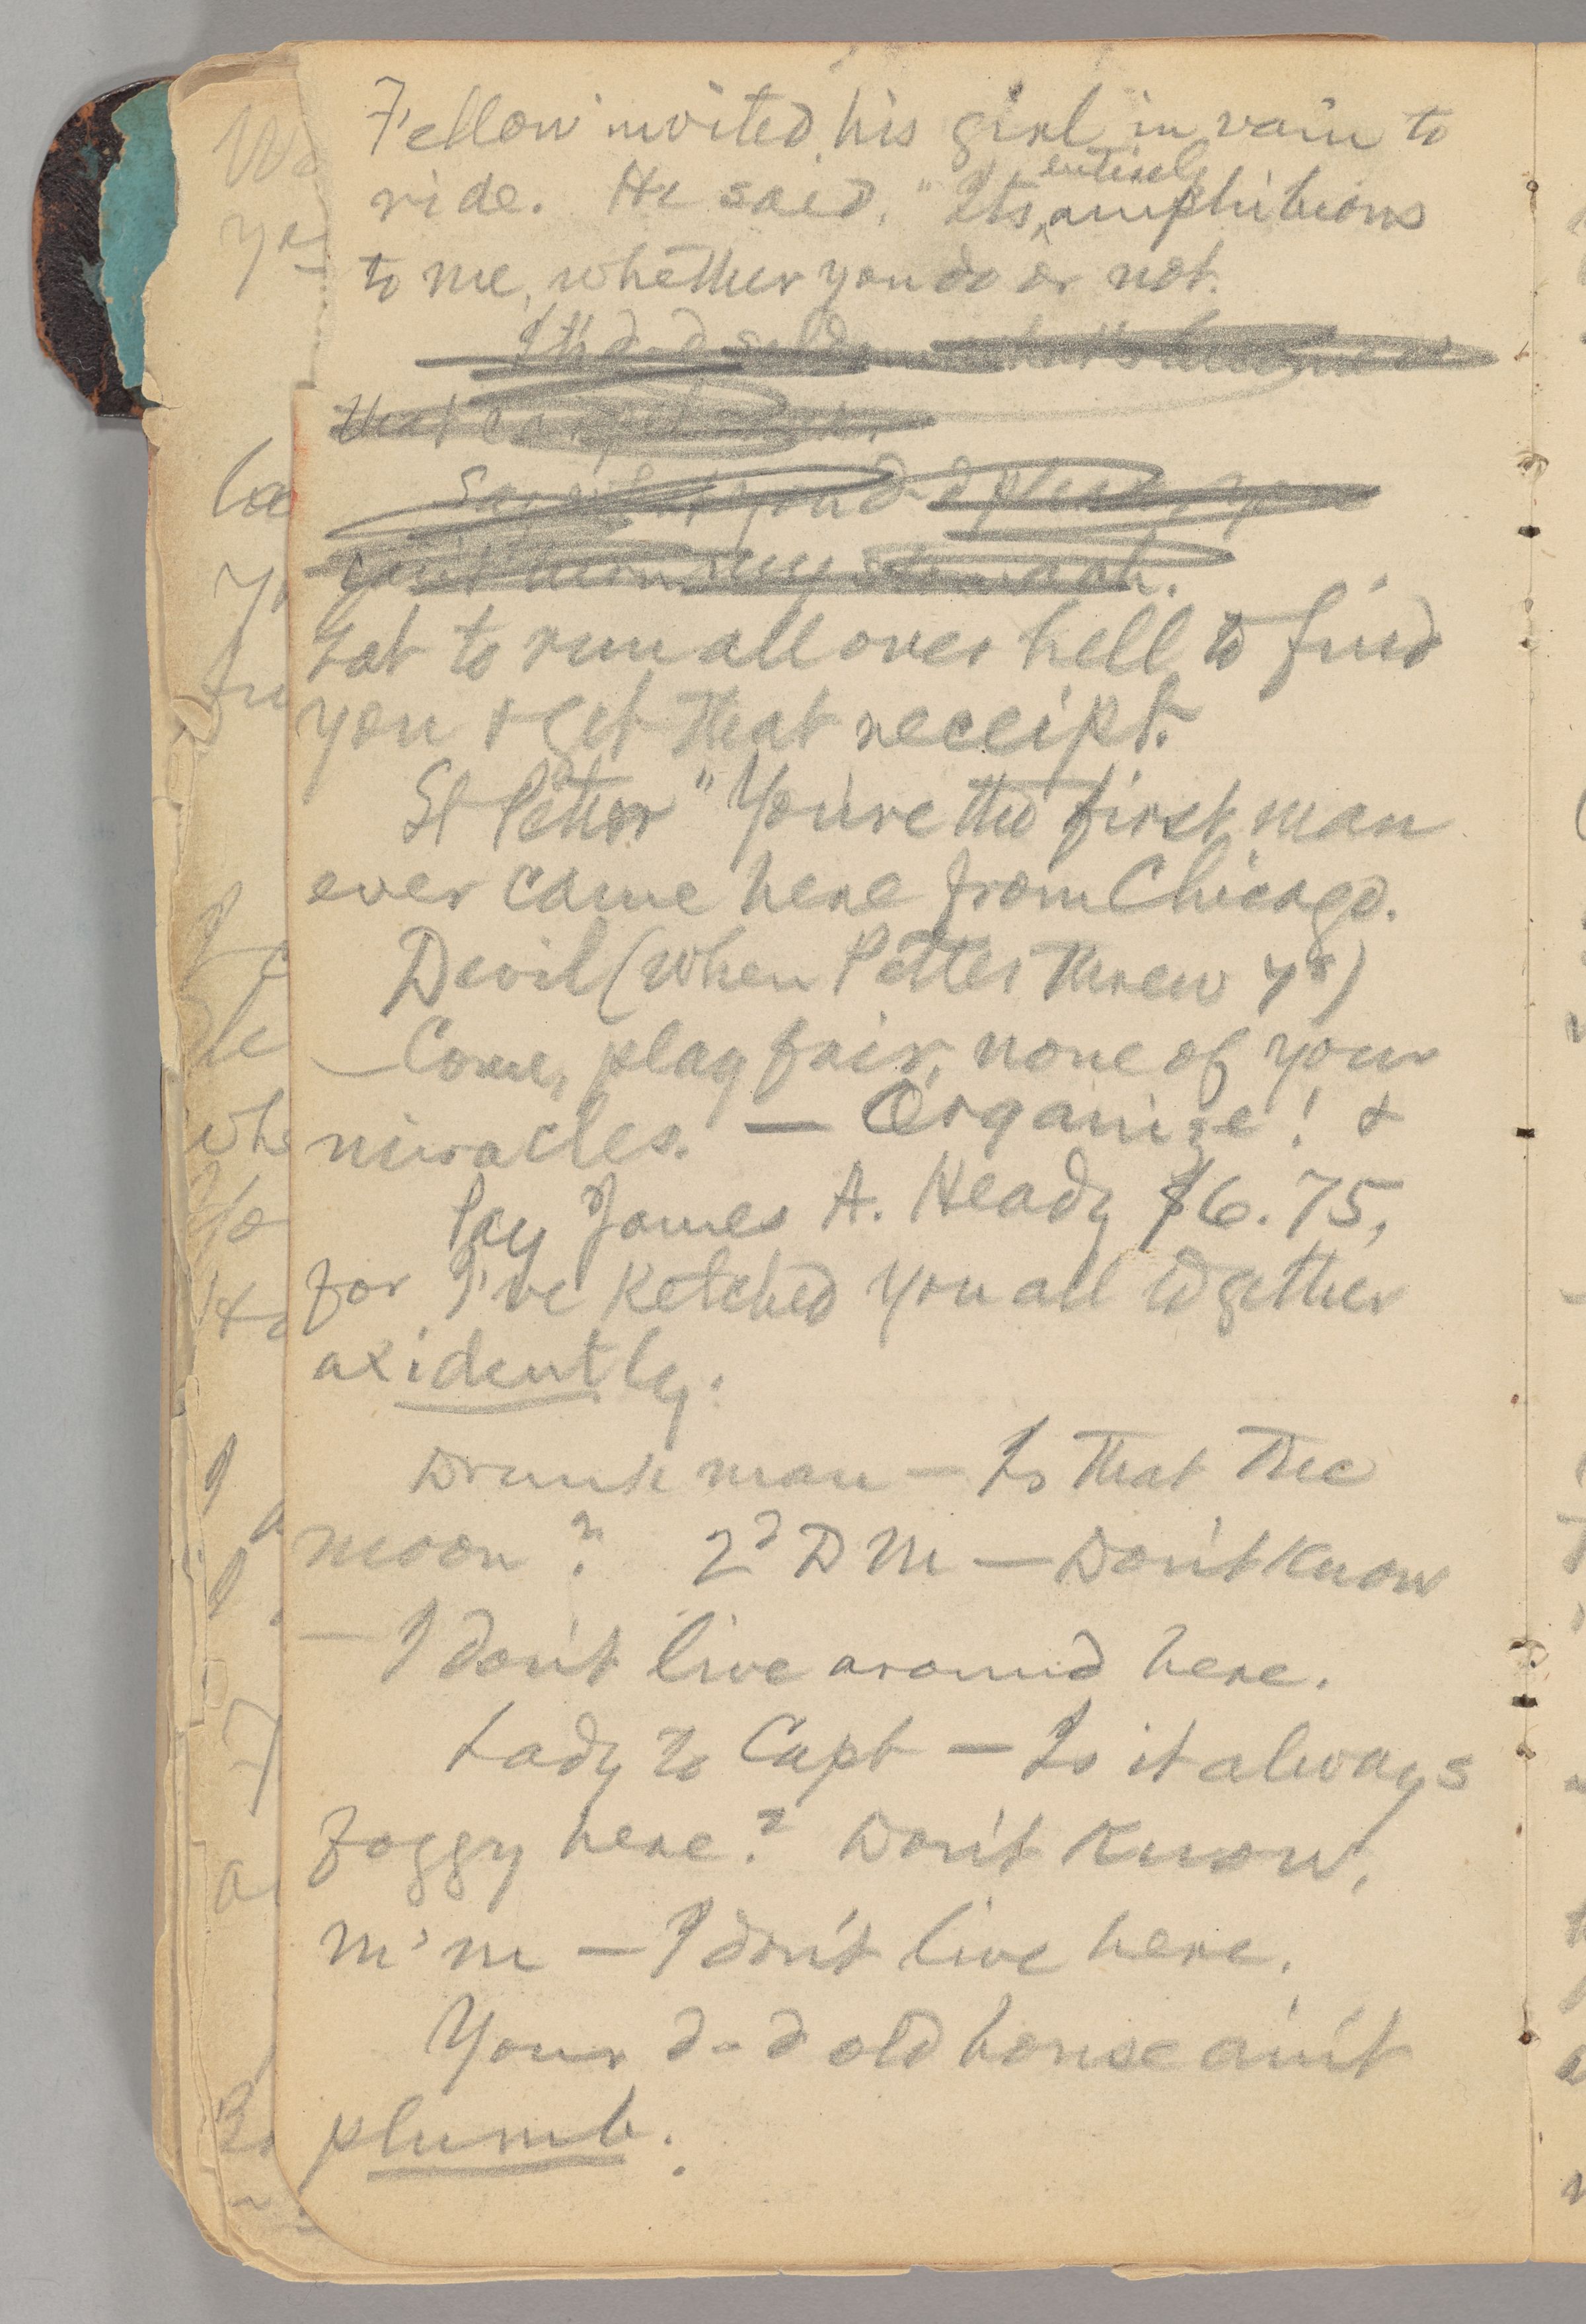 Fellow invited his girl in vain to
ride. He said, "Its entirely amphibious
to me, whether you do or not.
that carpet
Got to run all over hell to find
you & get that receipt.
St Peter "You're the first man
ever came here from Chicago.
Devil (when Peter threw 4s)
—Come, play fair, none of your
miracles. — Organize! &
Pay James A. Heady $6.75,
for I've ketched you all together
axidently.
Drunk man — Is that the
moon? 2d D M — Don't know
— I don't live around here.
Lady to Capt — Is it always
foggy here? Don't know,
m'm — I don't live here.
Your d—d old house ain't
plumb.